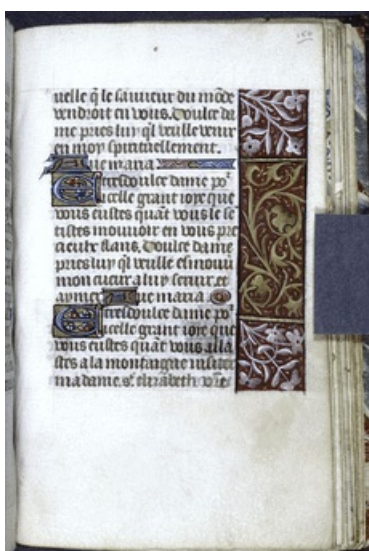 uelle q̃ le sauueur du mõde
vendroit en vous. Doulce da
me pries luy ql vueille venir
en moy spirituellement.
Aue maria
Et tresdoulce dame poʳ
icelle grant ioye que
vous eustes quãt vous le se
tistes mouuoir en vous pre
cieulx flans. Doulce dame
pries luy ql veulle esmouuoir
mon cueur a luy seruir et
aymer Aue maria.
Et tresdoulce dame poʳ
icelle grant ioye que
vous eustes quãt vous alla
stes a la montaigne uisiter
madame. sᵗ elizabeth vᵒʳe